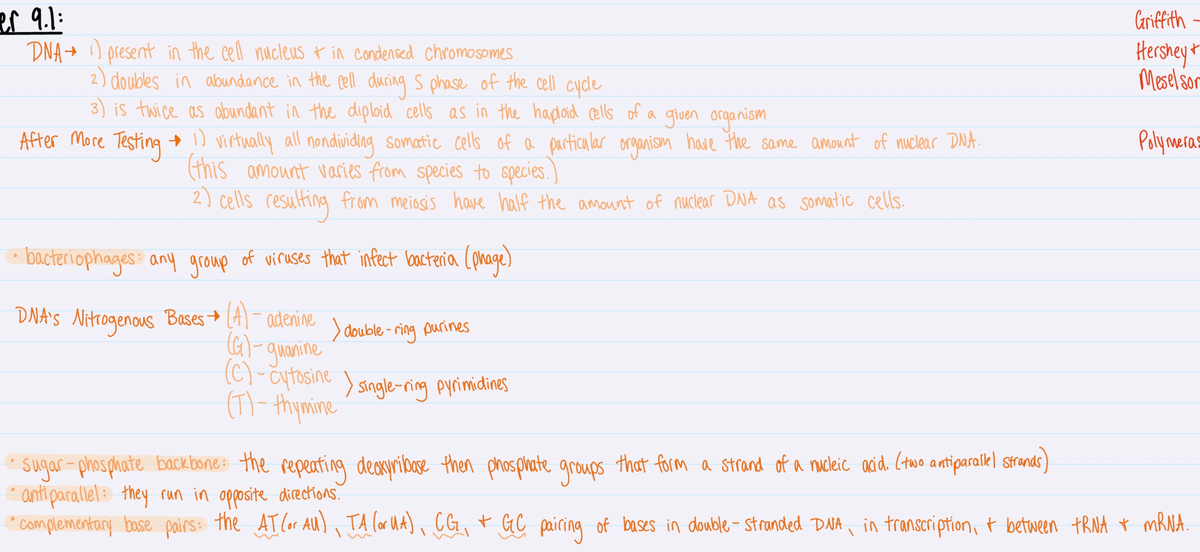 er 9.1:
DNA→ 1) present in the cell nucleus + in condensed chromosomes
2) doubles in abundance in the cell during S phase of the cell cycle
3) is twice as abundant in the diploid cells as in the haploid cells of a given organism
After More Testing → 1) virtually all nondividing somatic cells of a particular organism have the same amount of nuclear DNA.
(this amount varies from species to species.)
2) cells resulting from meiosis have half the amount of nuclear DNA as somatic cells.
• bacteriophages: any group of viruses that infect bacteria (phage)
DNA's Nitrogenous Bases → (A) - adenine
(G) - guanine
> double-ring purines
(C) - cytosine
(T) - thymine
> single-ring pyrimidines
• sugar-phosphate backbone: the repeating deoxyribose then phosphate groups that form a strand of a nucleic acid. (two antiparallel strands)
• antiparallel: they run in opposite directions.
• complementary base pairs: the AT (or AU), TA (or UA), CG, + GC pairing of bases in double-stranded DNA, in transcription, + between tRNA + mRNA.
Griffith -
Hershey +
Meselson
Polymeras